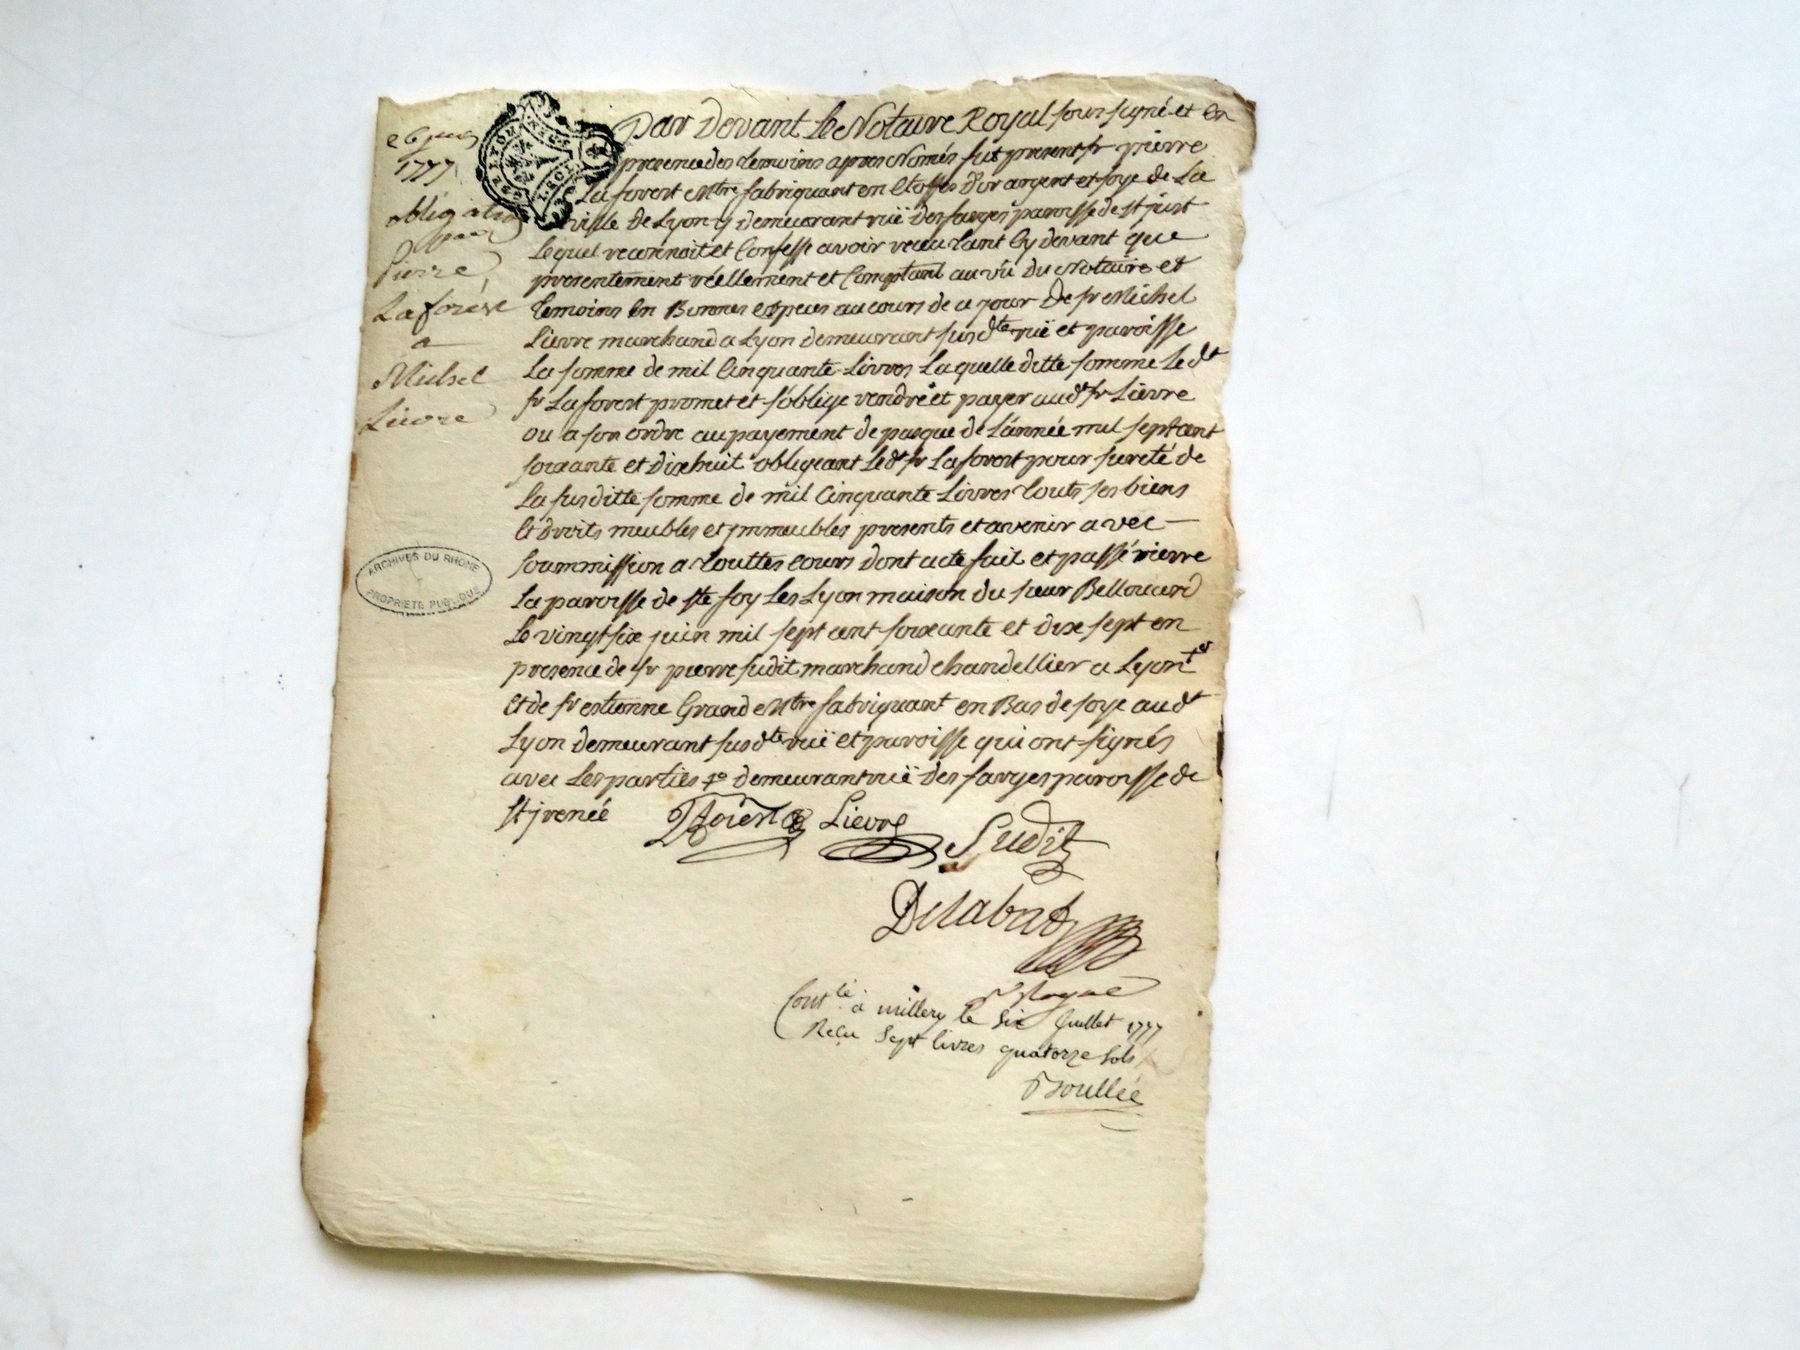 26 juin
1777
obligation
par
Pierre
Laforest
a
Michel
Lievre
Par Devant Le Notaire Royal soussigné et en
presence des temoins apres Només fut present sr pierre
Laforest Mtre fabriquant en Etoffes d'or argent et soye de La
ville de Lyon y demeurant ruë des farges paroisse de st just
Lequel reconnoit et Confesse avoir receu tant Cy devant que
presentement réellement et Comptant au vû du Notaire et
temoins En Bonnes especes au cours de ce jour De sr Michel
Lievre marchand a Lyon demeurant susdte ruë et paroisse
La somme de mil Cinquante Livres Laquelle ditte somme Ledt
sr Laforest promet et s'oblige rendre et payer audt sr Lievre
ou a son ordre au payement de pasque de L'année mil sept cent
soixante et Dixhuit obligeant Ledt sr Laforest pour sureté de
La susditte somme de mil Cinquante Livres touts ses biens
Et droits meubles et jmmeubles presents et avenir avec
soummission a touttes cours dont acte fait et passé rierre
La paroisse de Ste foy Les Lyon maison du sieur Bellouard
Le vingt six juin mil sept cent soixante et dix sept en
presence de sr pierre sudit marchand chandellier a Lyon
Et de sr estienne Grand Mtre fabriquant en Bas de soye audt
Lyon demeurant susdte ruë et paroisse qui ont signés
avec Les parties demeurant ruë des farges paroisse de
St jrenée
Lievre Sudit
Contlé à millery le Six Juillet 1777
Reçu Sept livres quatorze sols
ARCHIVES DU RHONE
PROPRIETE PUBLIQUE